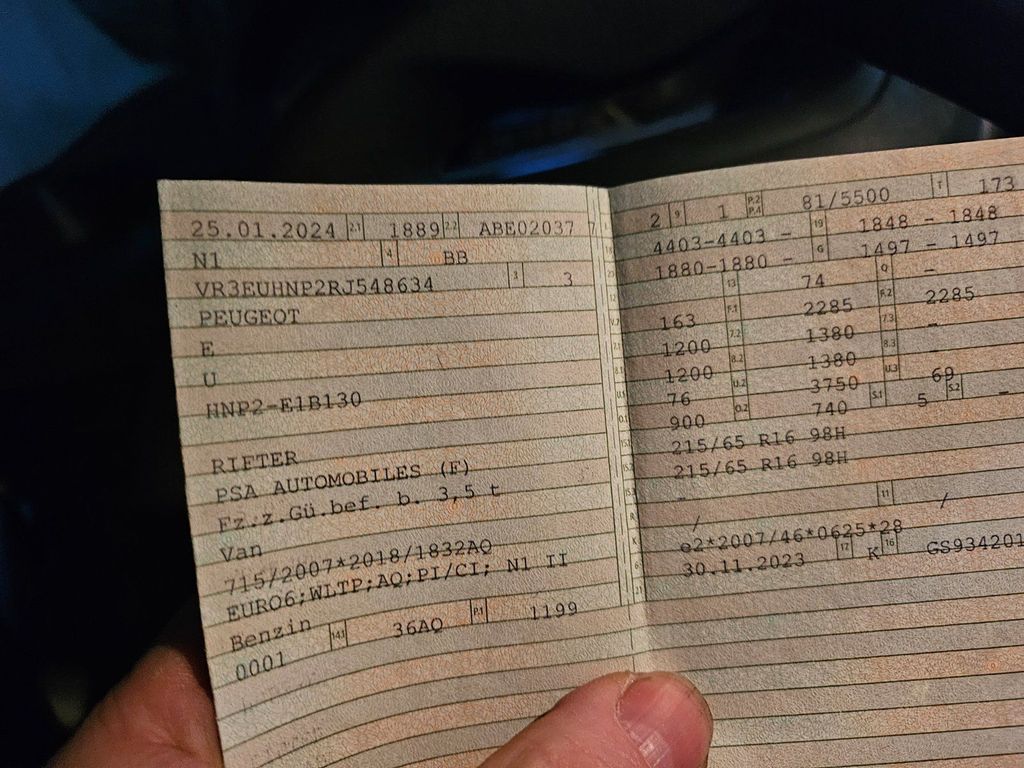 25.01.2024 2.1 1889 2.2 ABE02037
N1 4 BB
VR3EUHNP2RJ548634 3 3
PEUGEOT
E
U
HNP2-E1B130
RIFTER
PSA AUTOMOBILES (F)
Fz.z.Gü.bef. b. 3,5 t
Van
715/2007*2018/1832AQ
EURO6;WLTP;AQ;PI/CI; N1 II
Benzin
0001 14.1 36AQ P.1 1199
2 9 1 P.2 P.4 81/5500 T 173
4403-4403 - 19 1848 - 1848
1880-1880 - G 1497 - 1497
13 74 Q -
163 F.1 2285 F.2 2285
1200 7.2 1380 7.3 -
1200 8.2 1380 8.3
76 U.2 3750 U.3 69
900 O.2 740 S.1 5 S.2 -
215/65 R16 98H
215/65 R16 98H
-
/ 11 /
e2*2007/46*0625*28
30.11.2023 17 K 16 GS934201